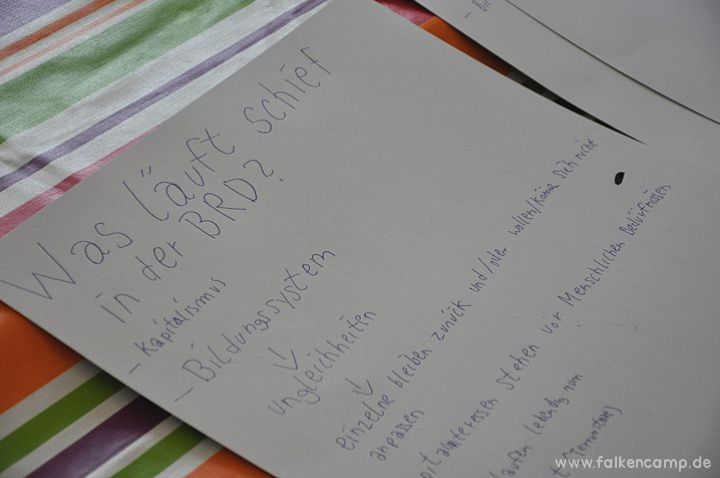 Was läuft schief
in der BRD?
- Kapitalismus
- Bildungssystem
↓
ungleichheiten
↓
einzelne bleiben zurück und/oder wollen/könn. sich nicht
anpassen
stehen vor Menschlichen Bedürfnissen
laufen lebendig
www.falkencamp.de